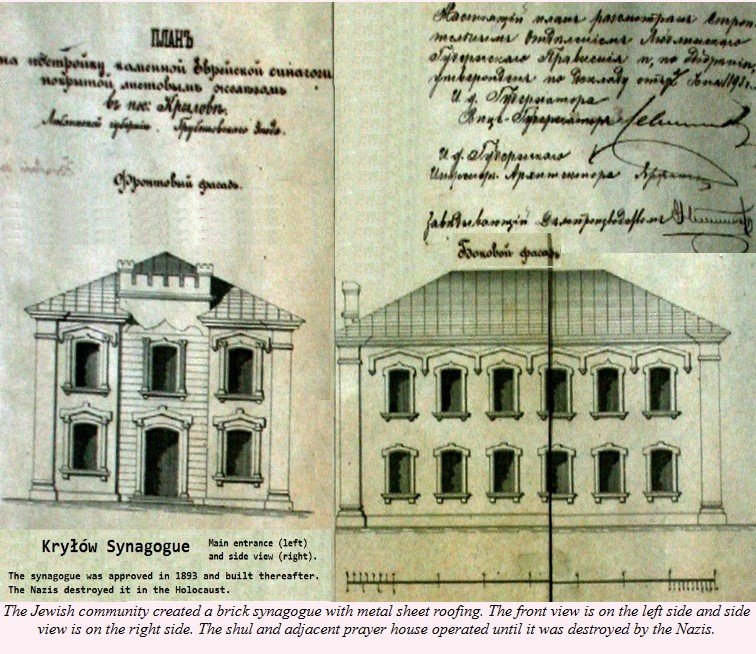 ПЛАНЪ
на постройку каменной Еврейской синагоги
покрытой листовымъ
въ пос. Крыловѣ.
Люблинской губерніи. Грубешовскаго уѣзда.
Фронтовый фасадъ.
Настоящій планъ разсмотренъ Строи-
тельнымъ Отдѣленіемъ Люблинскаго
Губернскаго Правленія и, по
утвержденъ по докладу отъ
И. д. Губернатора
Вице-Губернаторъ
И. д. Губернскаго
Архитектора
Завѣдывающій Дѣлопроизводствомъ
Боковой фасадъ
Kryłów Synagogue
Main entrance (left)
and side view (right).
The synagogue was approved in 1893 and built thereafter.
The Nazis destroyed it in the Holocaust.
The Jewish community created a brick synagogue with metal sheet roofing. The front view is on the left side and side
view is on the right side. The shul and adjacent prayer house operated until it was destroyed by the Nazis.